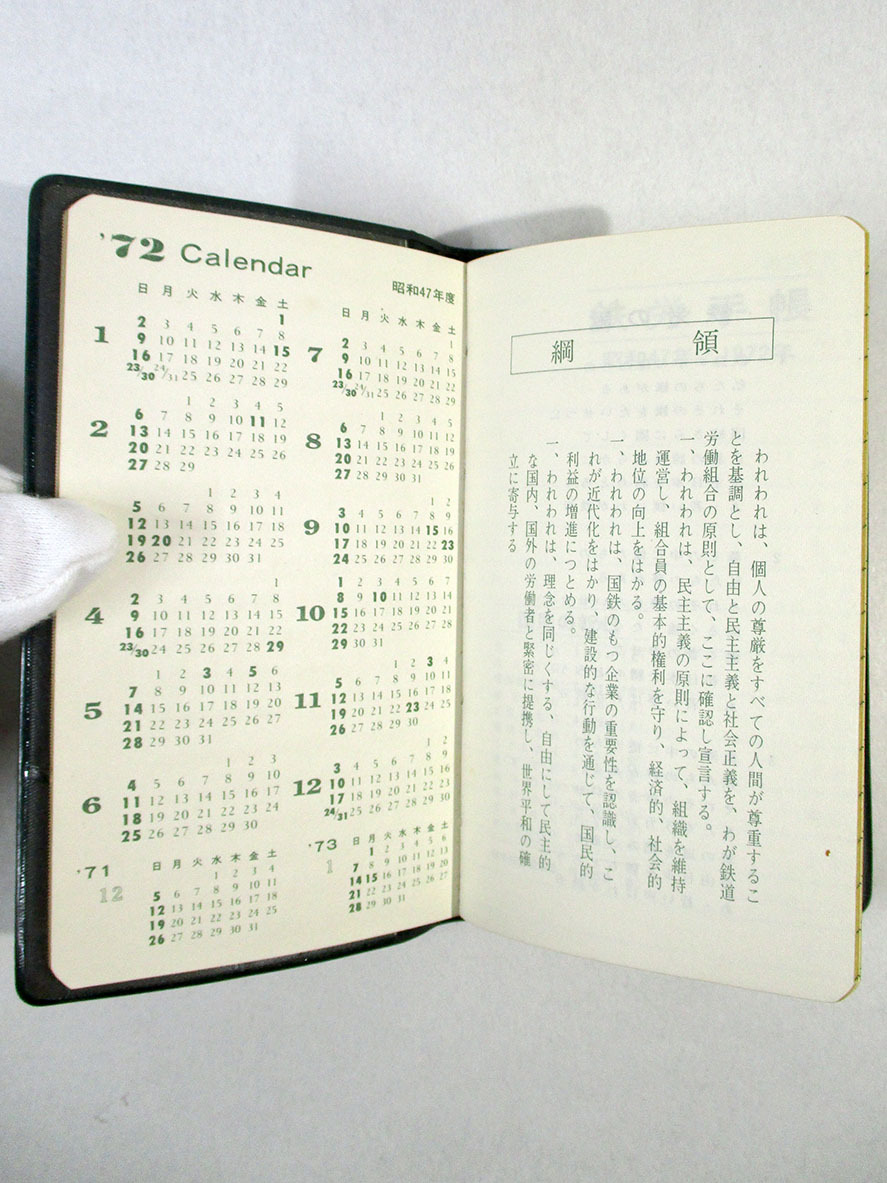 '72 Calendar
昭和47年度
日 月 火 水 木 金 土
1
1
2 3 4 5 6 7 8
9 10 11 12 13 14 15
16 17 18 19 20 21 22
23/30 24/31 25 26 27 28 29
2
1 2 3 4 5
6 7 8 9 10 11 12
13 14 15 16 17 18 19
20 21 22 23 24 25 26
27 28 29
1 2 3 4
5 6 7 8 9 10 11
12 13 14 15 16 17 18
19 20 21 22 23 24 25
26 27 28 29 30 31
4
1
2 3 4 5 6 7 8
9 10 11 12 13 14 15
16 17 18 19 20 21 22
23/30 24 25 26 27 28 29
5
1 2 3 4 5 6
7 8 9 10 11 12 13
14 15 16 17 18 19 20
21 22 23 24 25 26 27
28 29 30 31
6
1 2 3
4 5 6 7 8 9 10
11 12 13 14 15 16 17
18 19 20 21 22 23 24
25 26 27 28 29 30
日 月 火 水 木 金 土
7
1
2 3 4 5 6 7 8
9 10 11 12 13 14 15
16 17 18 19 20 21 22
23/30 24/31 25 26 27 28 29
8
1 2 3 4 5
6 7 8 9 10 11 12
13 14 15 16 17 18 19
20 21 22 23 24 25 26
27 28 29 30 31
9
1 2
3 4 5 6 7 8 9
10 11 12 13 14 15 16
17 18 19 20 21 22 23
24 25 26 27 28 29 30
10
1 2 3 4 5 6 7
8 9 10 11 12 13 14
15 16 17 18 19 20 21
22 23 24 25 26 27 28
29 30 31
11
1 2 3 4
5 6 7 8 9 10 11
12 13 14 15 16 17 18
19 20 21 22 23 24 25
26 27 28 29 30
12
1 2
3 4 5 6 7 8 9
10 11 12 13 14 15 16
17 18 19 20 21 22 23
24/31 25 26 27 28 29 30
'71
12
日 月 火 水 木 金 土
1 2 3 4
5 6 7 8 9 10 11
12 13 14 15 16 17 18
19 20 21 22 23 24 25
26 27 28 29 30 31
'73
1
日 月 火 水 木 金 土
1 2 3 4 5 6
7 8 9 10 11 12 13
14 15 16 17 18 19 20
21 22 23 24 25 26 27
28 29 30 31
綱 領
われわれは、個人の尊厳をすべての人間が尊重するこ
とを基調とし、自由と民主主義と社会正義を、わが鉄道
労働組合の原則として、ここに確認し宣言する。
一、われわれは、民主主義の原則によって、組織を維持
運営し、組合員の基本的権利を守り、経済的、社会的
地位の向上をはかる。
一、われわれは、国鉄のもつ企業の重要性を認識し、こ
れが近代化をはかり、建設的な行動を通じて、国民的
利益の増進につとめる。
一、われわれは、理念を同じくする、自由にして民主的
な国内、国外の労働者と緊密に提携し、世界平和の確
立に寄与する